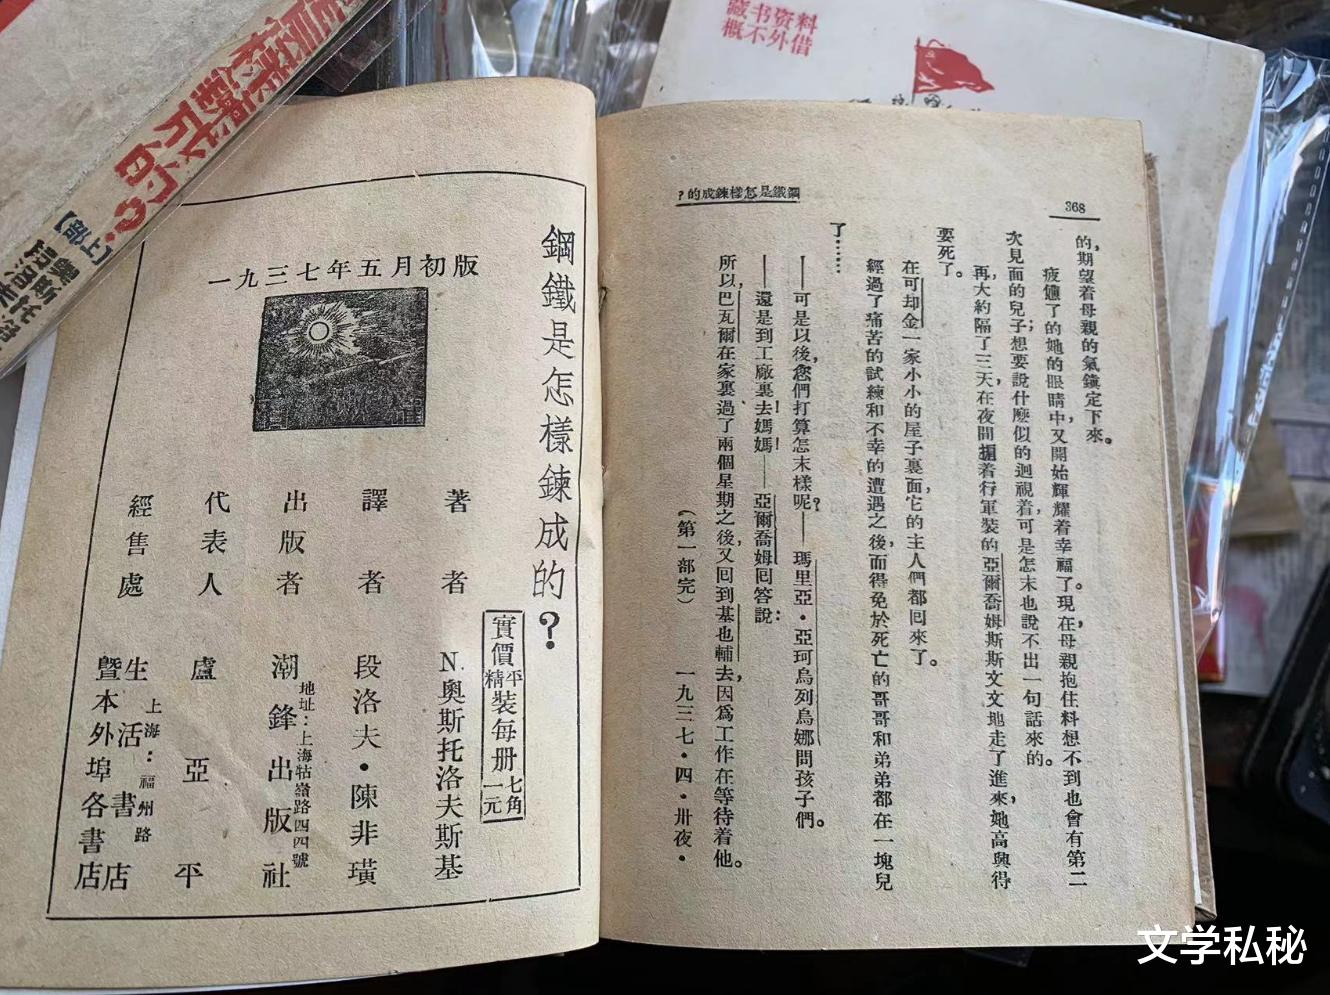 藏书资料
概不外借
樣鍊成的?
【上部】
奧斯托洛
鋼鐵是怎樣鍊成的?
一九三七年五月初版
實價平精裝每册七角一元
著者 N.奧斯托洛夫斯基
譯者 段洛夫·陳非璜
出版者 潮鋒出版社
地址:上海牯嶺路四四號
代表人 盧亞平
經售處 生活書店
上海:福州路
暨本外埠各書店
鋼鐵是怎樣鍊成的?
368
的,期望着母親的氣鎮定下來。
疲憊了的她的眼睛中,又開始輝耀着幸福了。現在,母親抱住料想不到也會有第二
次見面的兒子;想要說什麼似的迴視着,可是怎末也說不出一句話來的。
再,大約隔了三天,在夜間揹着行軍裝的亞爾喬姆斯斯文文地走了進來,她高興得
要死了。
在可却金一家小小的屋子裏面,它的主人們都囘來了。
經過了痛苦的試練和不幸的遭遇之後,而得免於死亡的哥哥和弟弟都在一塊兒
了……
——可是以後,您們打算怎末樣呢?——瑪里亞·亞珂烏列烏娜問孩子們。
——還是到工廠裏去,媽媽!——亞爾喬姆囘答說:
所以,巴瓦爾在家裏過了兩個星期之後,又囘到基也輔去,因爲工作在等待着他。
(第一部完) 一九三七·四·卅夜·
文学私秘